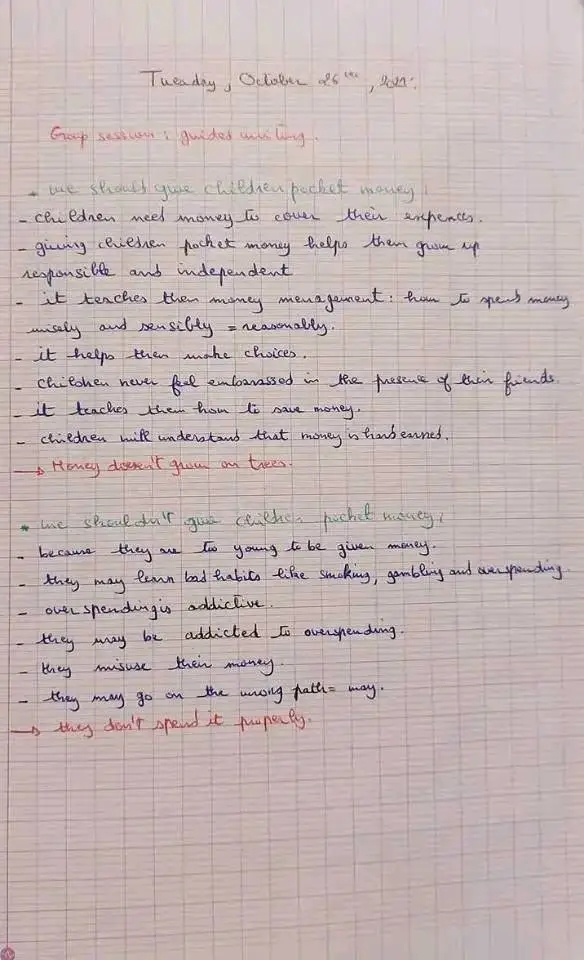 Tuesday, October 26th, 2021.
Group session: guided writing.
* we should give children pocket money:
- children need money to cover their expences.
- giving children pocket money helps them grow up
responsible and independent
- it teaches them money menagement: how to spend money
wisely and sensibly = reasonably.
- it helps them make choices.
- children never feel embarassed in the presence of their friends.
- it teaches them how to save money.
- children will understand that money is hard earned.
→ Money doesn't grow on trees.
* we shouldn't give children pocket money:
- because they are too young to be given money.
- they may learn bad habits like smoking, gambling and overspending.
- overspending is addictive.
- they may be addicted to overspending.
- they misuse their money.
- they may go on the wrong path = way.
→ they don't spend it properly.